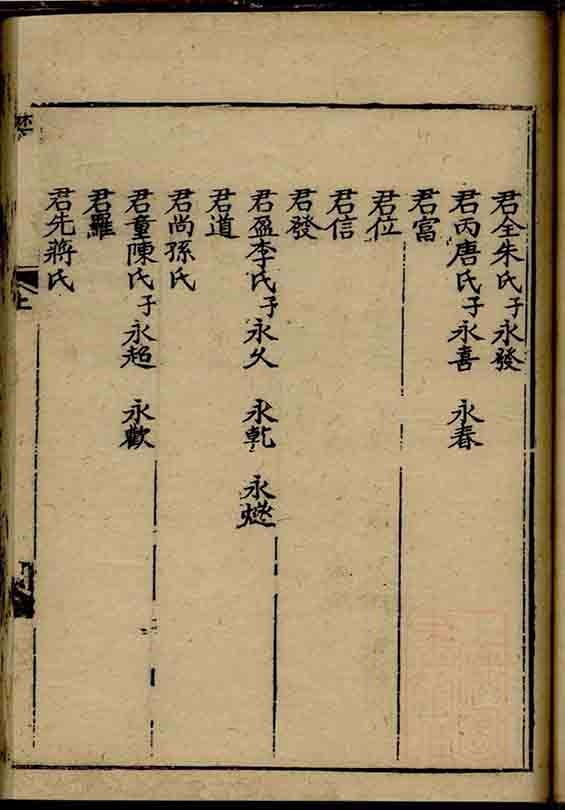 君全朱氏子永發
君丙唐氏子永喜 永春
君富
君位
君信
君發
君盈李氏子永久 永乾 永燃
君道
君尚孫氏
君童陳氏子永超 永歡
君羅
君先蔣氏
上